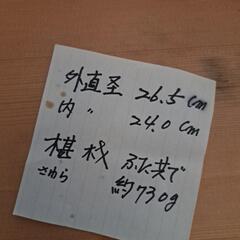 外直圣 26.5cm
内 〃 24.0cm
椹材 ふた共で
さわら 約730g